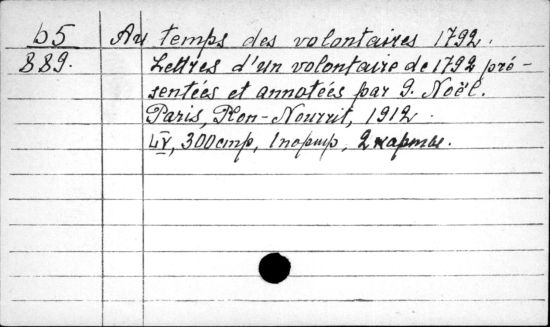 б5 Au temps des volontaires 1792.
889. Lettres d'un volontaire de 1792 pré-
sentées et annotées par G. Noël.
Paris, Plon-Nourrit, 1912.
IV, 300 стр., 1 портр, 2 карты.